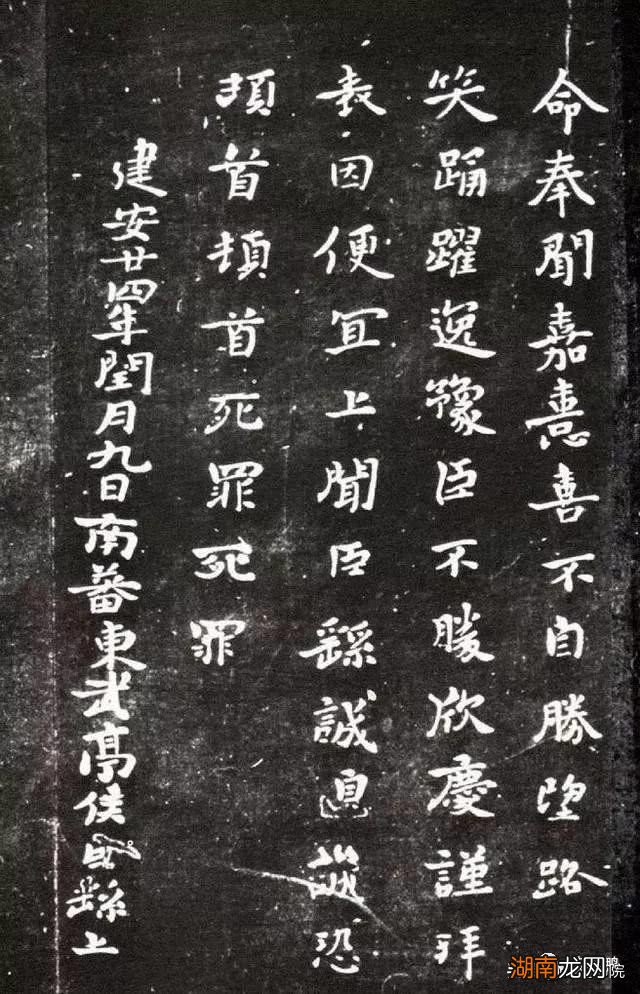 命奉聞嘉憙喜不自勝望路
笑踊躍逸豫臣不勝欣慶謹拜
表因便宜上聞臣繇誠皇誠恐
頓首頓首死罪死罪
建安廿四年閏月九日南蕃東武亭侯臣繇上
湖南龙网